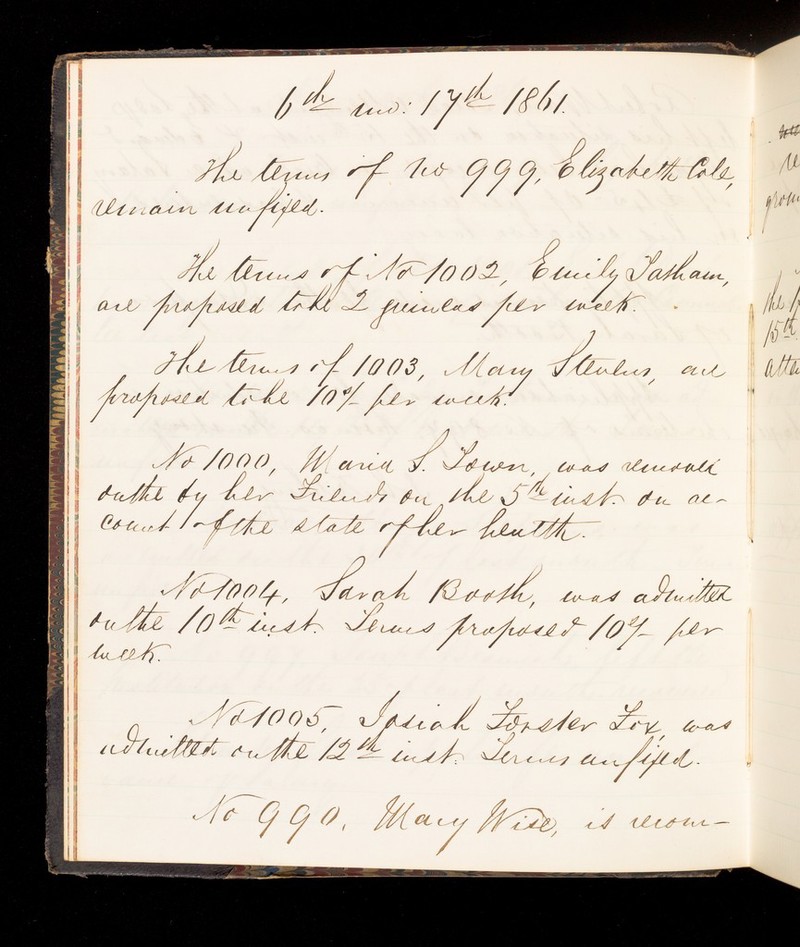 6th mo: 17th 1861.
The terms of No 999, Elizabeth Cole,
remain unfixed.
The terms of No 1002, Emily Tatham,
are proposed to be 2 guineas per week.
The terms of 1003, Mary Stevens, are
proposed to be 10s/- per week.
No 1000, Maria S. Town, was removed
on the by her Friends on the 5th inst. on ac-
count of the state of her health.
No 1004, Sarah Booth, was admitted
on the 10th inst. Terms proposed 10s/- per
week.
No 1005, Josiah Forster Fox, was
admitted on the 12th inst. Terms unfixed.
No 990, Mary Wise, is recom-
the
15th